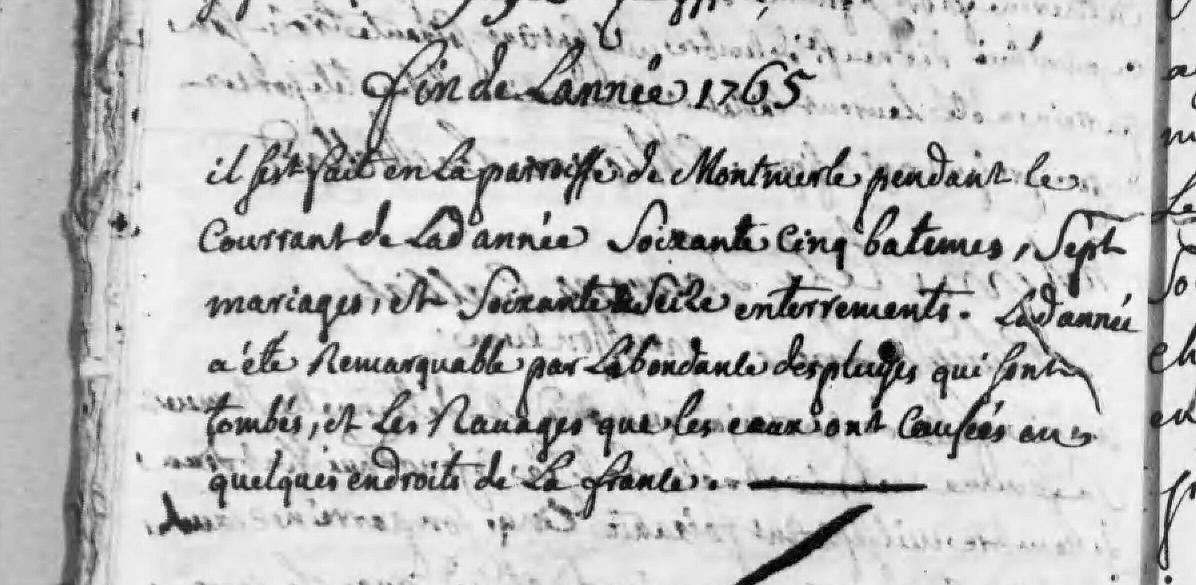 fin de Lannée 1765
il s'est fait en La parroisse de Montmerle pendant le
Courrant de Lad année Soixante Cinq batemes, Sept
mariages, et Soixante & Seize enterrements. Lad année
a été Remarquable par Labondance des pluyes qui sont
tombés, et Les Ravages que les eaux ont Causées en
quelques endroits de La france.